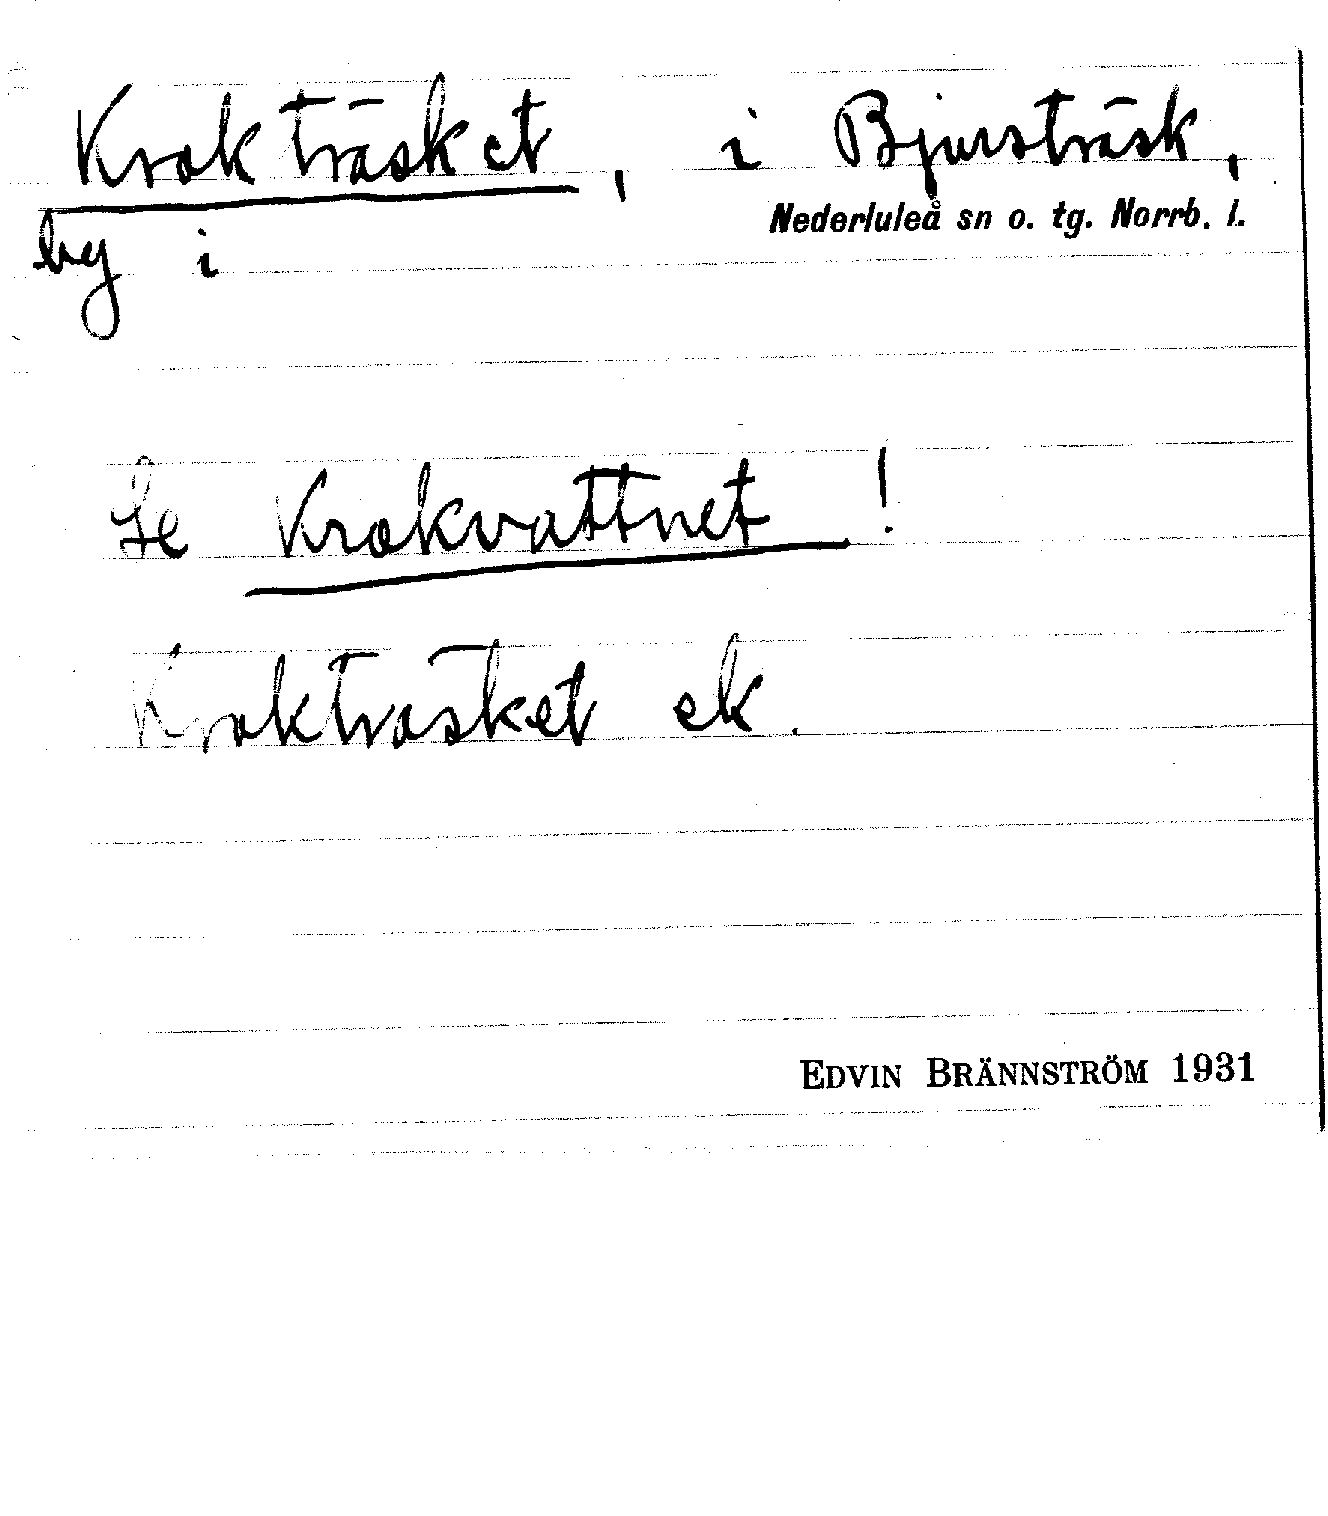 Krokträsket, i Bjursträsk,
by i Nederluleå sn o. tg. Norrb. l.
Se Krokvattnet!
Krokträsket ek.
EDVIN BRÄNNSTRÖM 1931